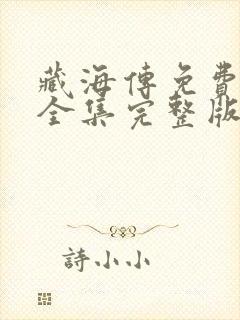 藏海傳免費
全集完整版
詩小小